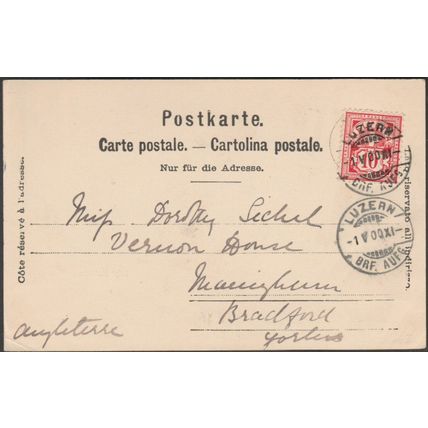 Postkarte.
Carte postale. — Cartolina postale.
Nur für die Adresse.
Côté réservé à l'adresse.
Lato riservato all'indirizzo.
10
LUZERN
1 V 00 XI
BRF. AUFG.
LUZERN
-1 V 00 XI-
BRF. AUFG.
Miss Dorothy Sichel
Vernon House
Manningham
Bradford
Yorks
Angleterre